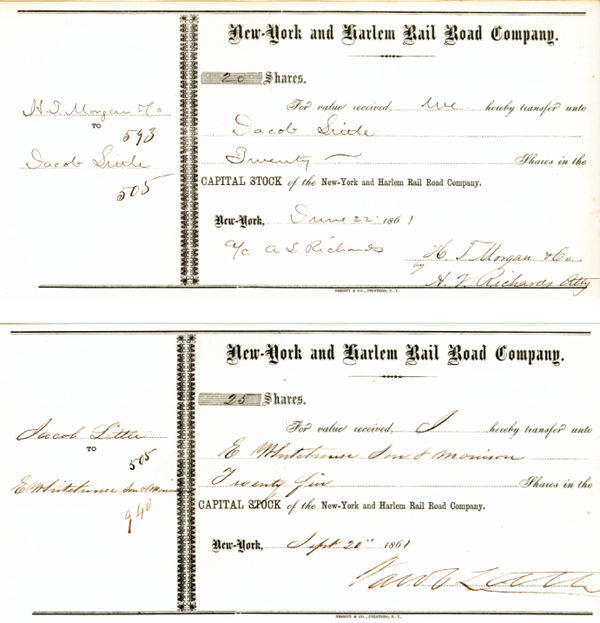 New-York and Harlem Rail Road Company.
20 Shares.
For value received, We hereby transfer unto
Jacob Little
Twenty Shares in the
CAPITAL STOCK of the New-York and Harlem Rail Road Company.
New-York, June 22 1861
a/c A S Richards
H. T. Morgan & Co
by A. V. Richards Atty
NESBITT & CO., PRINTERS, N. Y.
H. T. Morgan & Co
TO
593
Jacob Little
505
New-York and Harlem Rail Road Company.
25 Shares.
For value received, I hereby transfer unto
E Whitehouse Son & Morison
Twenty five Shares in the
CAPITAL STOCK of the New-York and Harlem Rail Road Company.
New-York, Sept 20" 1861
Jacob Little
NESBITT & CO., PRINTERS, N. Y.
Jacob Little
TO
505
E Whitehouse Son & Morison
940